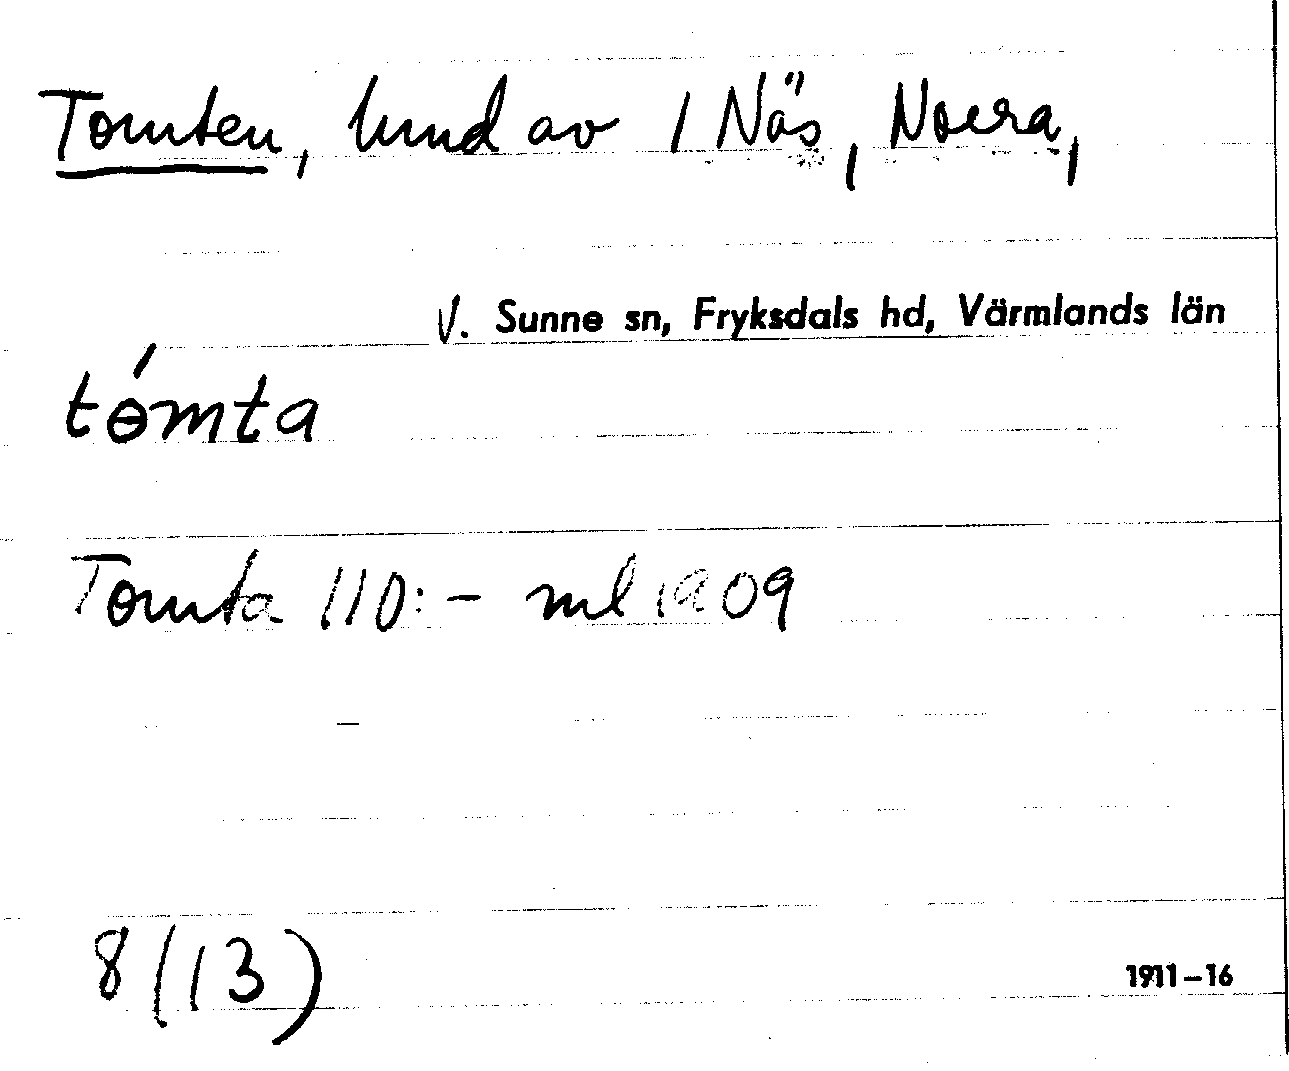 Tomten, hmd av 1 Näs, Norra,
V. Sunne sn, Fryksdals hd, Värmlands län
tómta
Tomta 110:- ml 1909
8 (13)
1911–16